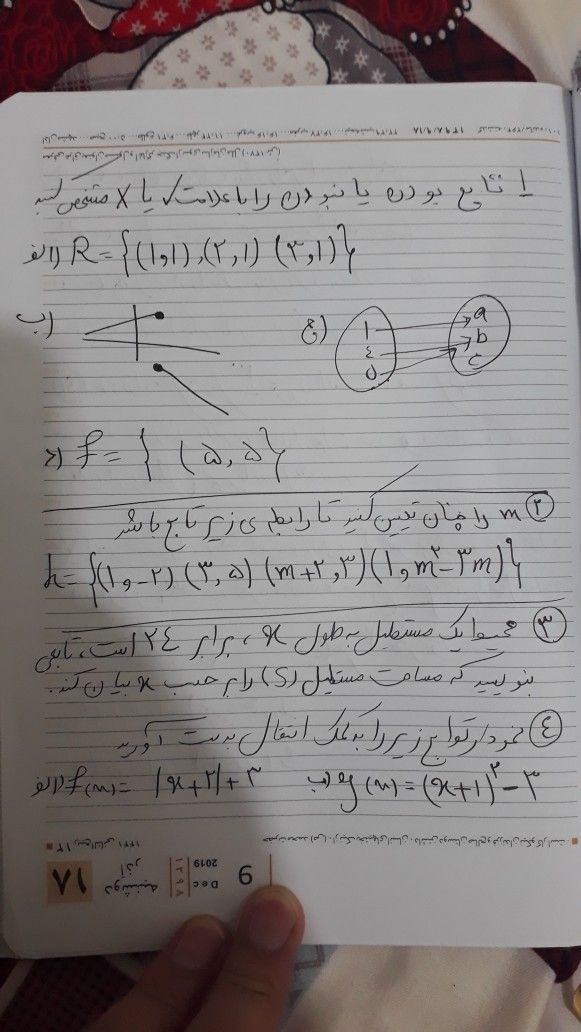 ۱ تابع بودن یا نبودن را با علامت √ یا X مشخص کنید
الف) R = {(۱,۱),(۲,۱) (۳,۱)}
ب)
ج) ۱ ٤ ۵ a b c
د) f = { (۵,۵}
۲ m را چنان تعیین کنید تا رابطه ی زیر تابع باشد
h= {(۱,-۲) (۳,۵) (m+۲,۳)(۱,m²-۳m)}
۳ محیط یک مستطیل به طول x، برابر ۲٤ است، تابعی
بنویسید که مساحت مستطیل (S) را بر حسب x بیان کند.
٤ نمودار توابع زیر را به کمک انتقال بدست آورید
الف) f(x) = |x+۲|+۳ ب) g(x) = (x+۱)²-۳
۱۸ دوشنبه آذر ۱۳۹۸ Dec 2019 9